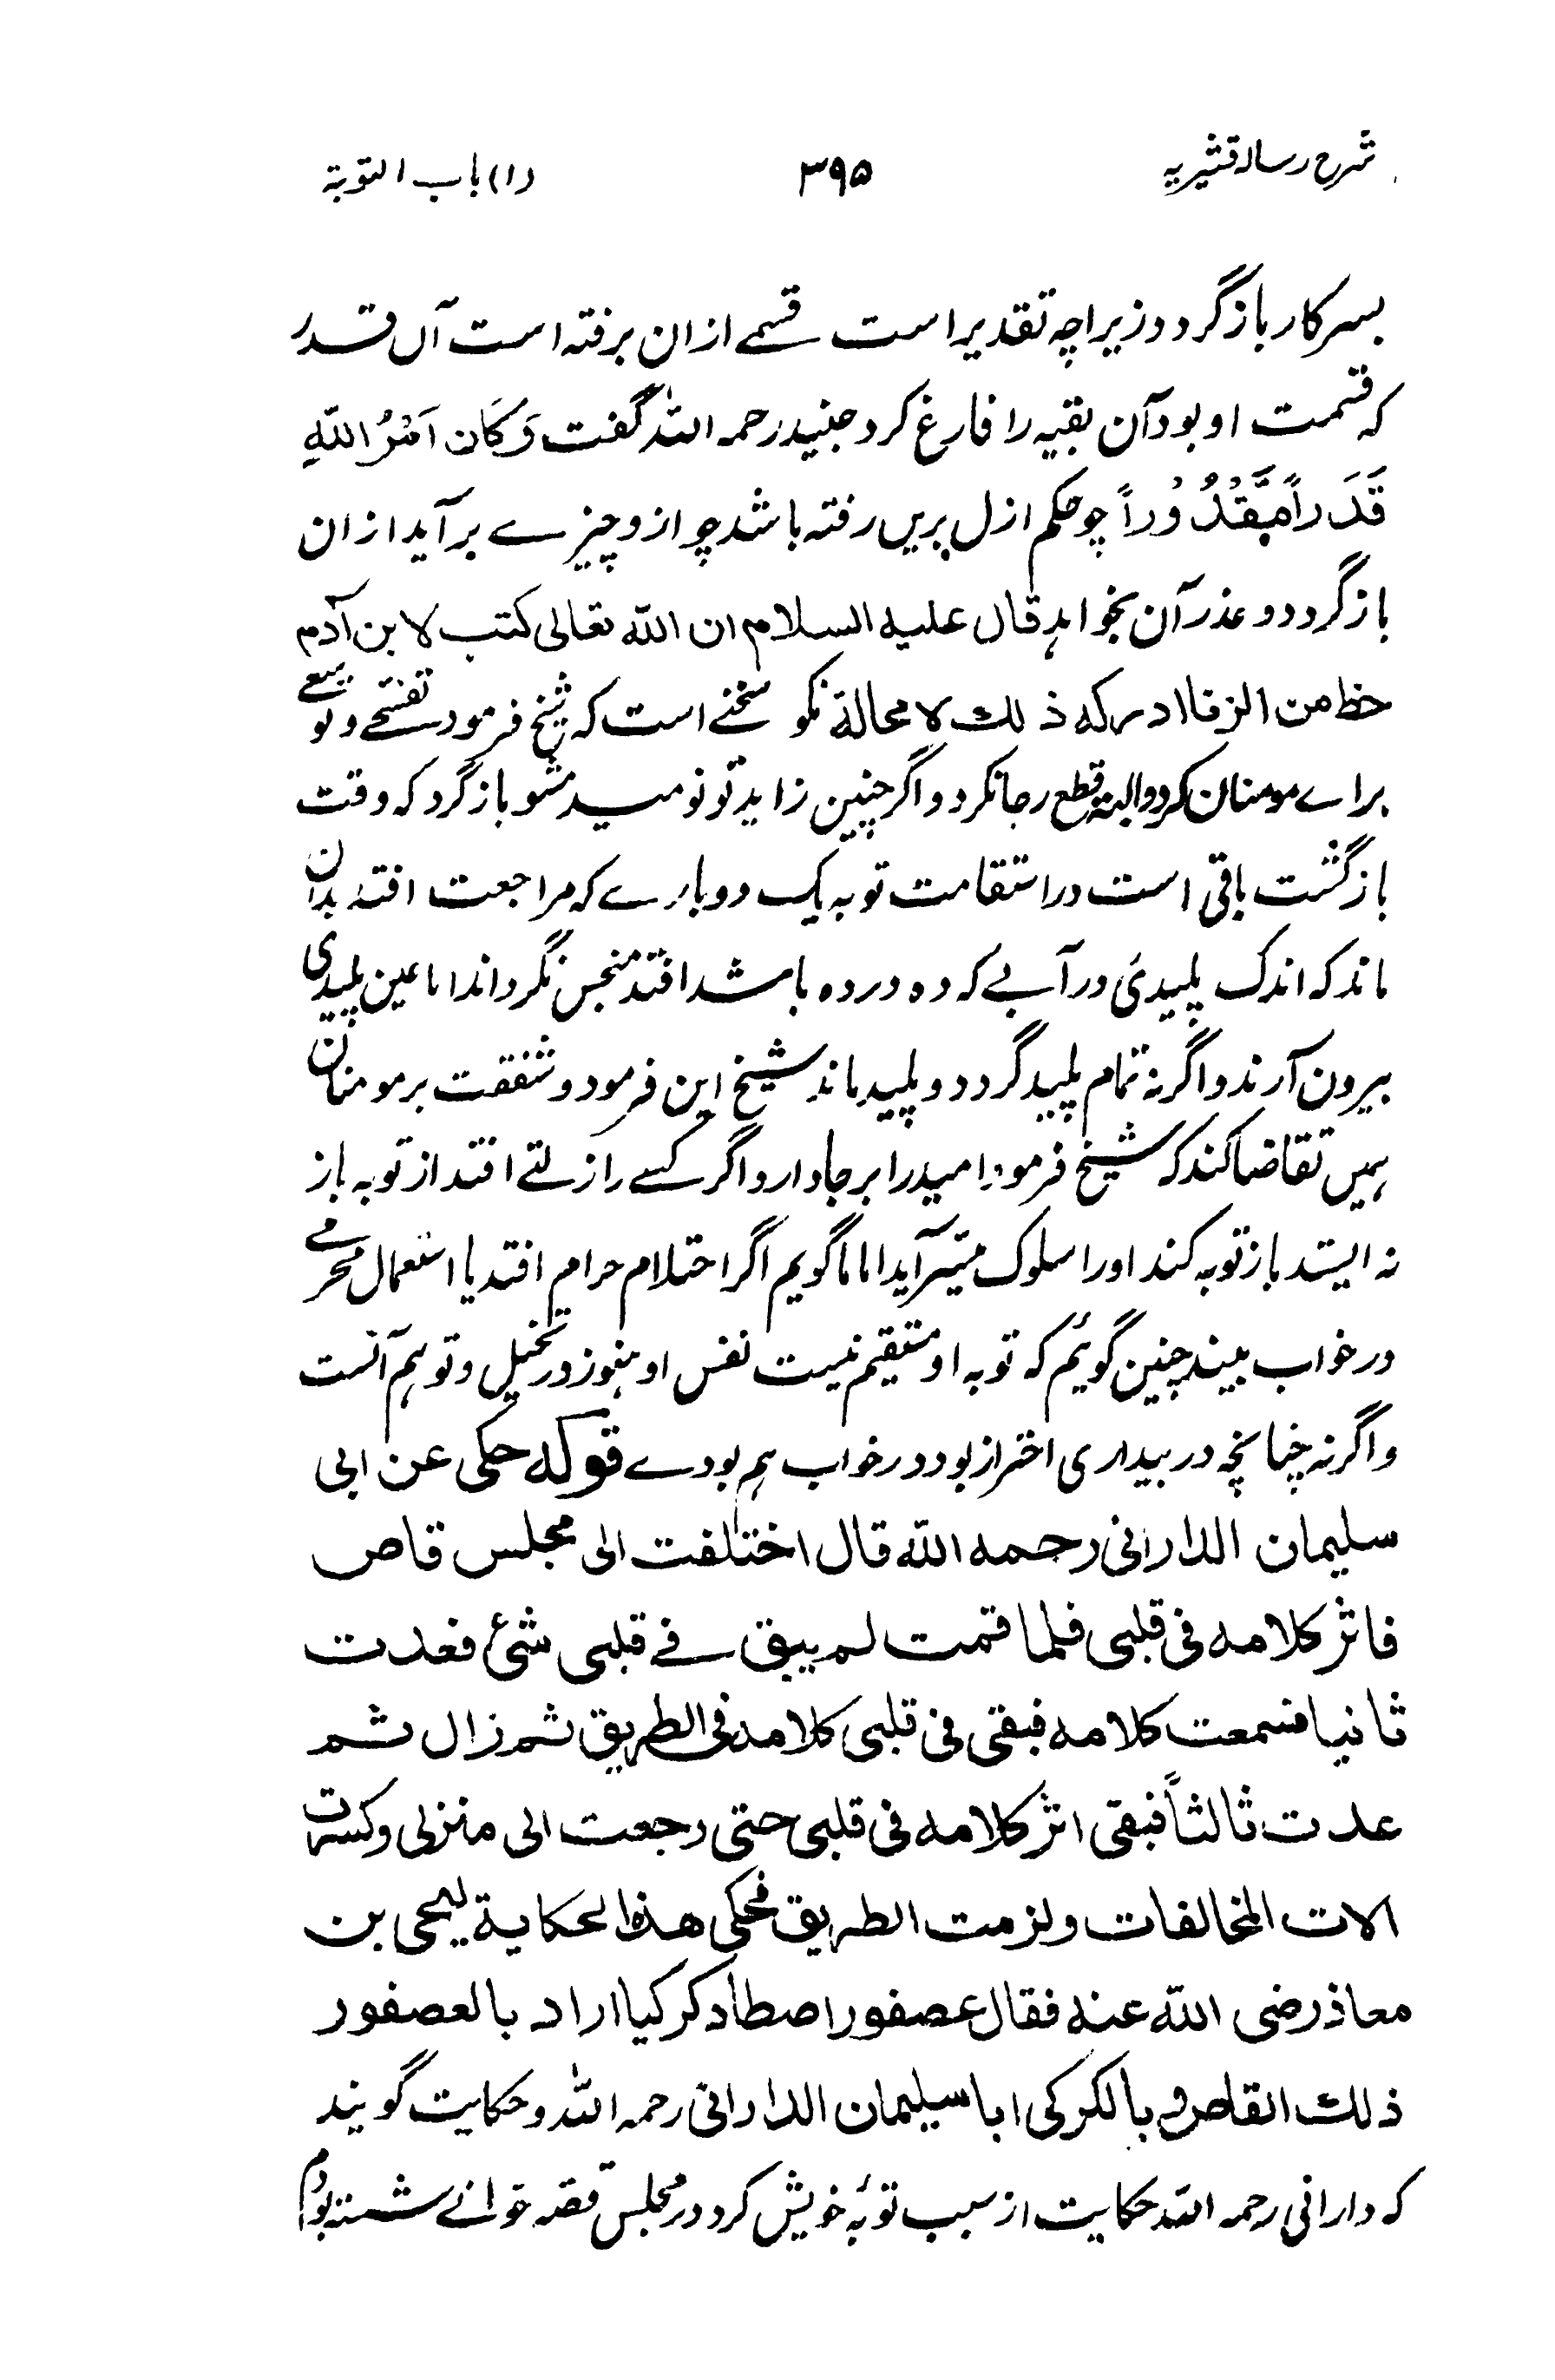 شرح رساله قشیریه ۳۹۵ (۱) باب التوبة
بسر کار باز گردد زیراچه تقدیر است قسمے ازان برفته است آں قدر
که قسمت او بود آن بقیه را فارغ کرد جنید رحمه الله گفت وَكَان اَمْرُ اللهِ
قَدَراً مَّقْدُوْراً چو حکم ازل بریں رفته باشد چو از و چیزے برآید ازان
باز گردد و عذر آن بخواهد قال علیه السلام ان الله تعالی کتب لابن آدم
حظ من الزنا ادرکه ذلك لا محالة نکو سخنے است که شیخ فرمود تفسّحے و توسّعے
براے مومنان کرد و البته قطع رجا نکرد و اگر چنین زاید تو نومید مشو باز گرد که وقت
بازگشت باقی است در استقامت توبه یک دو بارے که مراجعت افتد بدان
ماند که اندک پلیدیٔ در آبے که ده در ده باشد افتد منجس نگرداند اما عین پلیدی
بیرون آرند و اگر نه تمام پلید گردد و پلید ماند شیخ این فرمود و شفقت بر مومنان
همیں تقاضا کند که شیخ فرمود امید را بر جا دارد اگر کسے را زلتے افتد از توبه باز
نه ایستد باز توبه کند او را سلوک میّسر آید اما ما گویم اگر احتلام حرام افتد یا استعمال محرمے
در خواب بیند چنین گوئیم که توبه او مستقیم نیست نفس او هنوز در تخیل و توهم آنست
و اگر نه چنانچه در بیداری احتراز بود در خواب هم بودے قوله حکی عن ابی
سلیمان الدارانی رحمه الله قال اختلفت الی مجلس قاص
فاثر کلامه فی قلبی فلما قمت لم یبق فے قلبی شئ فعدت
ثانیا فسمعت کلامه فبقی فی قلبی کلامه فی الطریق ثم زال ثم
عدت ثالثاً فبقی اثر کلامه فی قلبی حتی رجعت الی منزلی و کسرت
الات المخالفات ولزمت الطریق فحکی هذه الحکایة لیحی بن
معاذ رضی الله عنه فقال عصفور اصطاد کرکیا اراد بالعصفور
ذلك القاص و بالکرکی ابا سلیمان الدارانی رحمه الله و حکایت گویند
که دارانی رحمه الله حکایت از سبب توبهٔ خویش کرد در مجلس قصه خوانے نشسته بودم